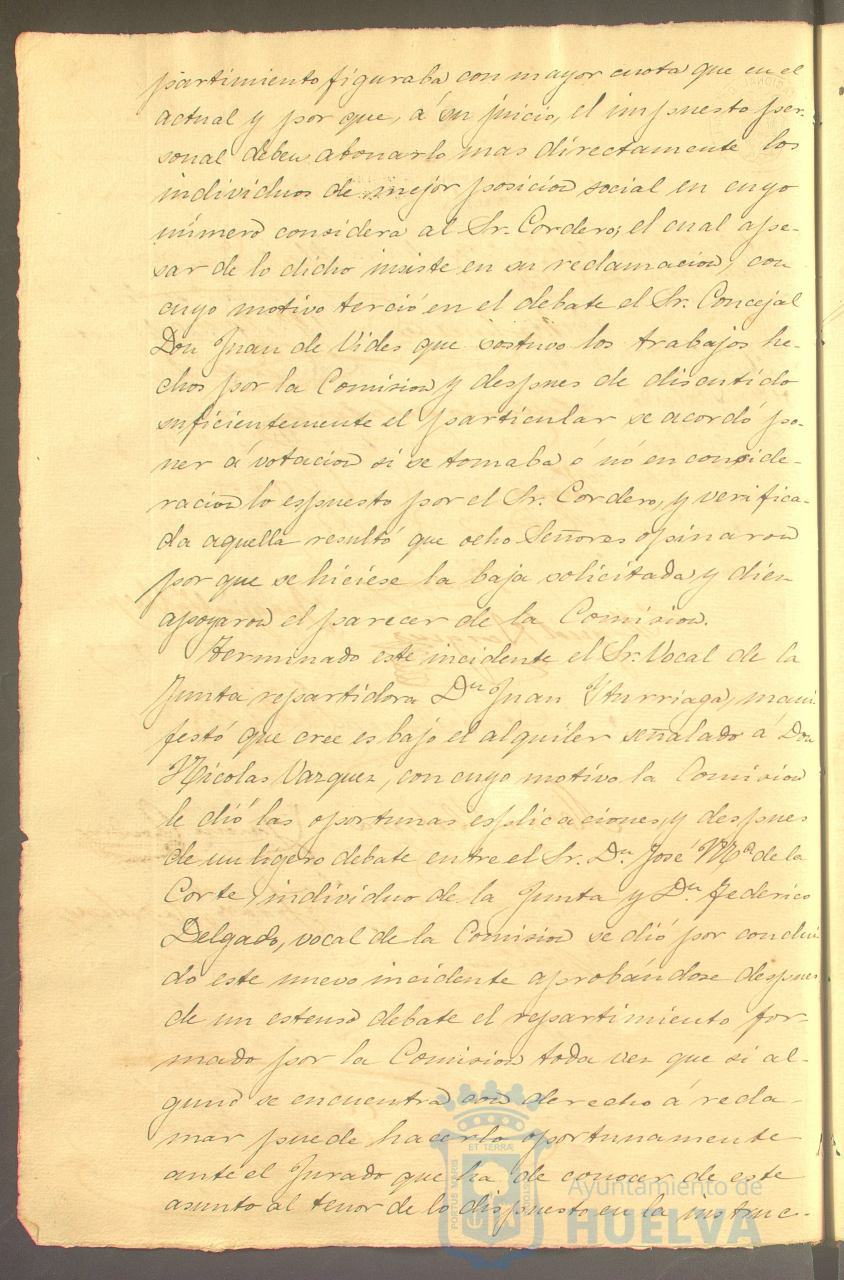 partimiento figuraba con mayor cuota que en el
actual y por que, á su juicio, el impuesto per-
sonal deben abonarlo mas directamente los
individuos de mejor posicion social en cuyo
número considera al Sr. Cordero; el cual ape-
sar de lo dicho insiste en su reclamacion, con
cuyo motivo terció en el debate el Sr. Concejal
Don Juan de Vides que sostuvo los trabajos he-
chos por la Comision y despues de discutido
suficientemente el particular se acordó po-
ner á votacion si se tomaba ó nó en conside-
racion lo espuesto por el Sr. Cordero, y verifica-
da aquella resultó que ocho Señores opinaron
por que se hiciese la baja solicitada y diez
apoyaron el parecer de la Comision.
Terminado este incidente el Sr. Vocal de la
Junta repartidora Dn Juan Yturriaga, mani
festó que cree es bajo el alquiler señalado á Don
Nicolas Vazquez, con cuyo motivo la Comision
le dió las oportunas esplicaciones, y despues
de un ligero debate entre el Sr. Dn. José Ma. de la
Corte, individuo de la Junta y Dn. Federico
Delgado, vocal de la Comision se dió por conclui
do este nuevo incidente aprobándose despues
de un estenso debate el repartimiento for-
mado por la Comision toda vez que si al-
guno se encuentra con derecho á recla-
mar puede hacerlo oportunamente
ante el Jurado que ha de conocer de este
asunto al tenor de lo dispuesto en la instruc-
ET TERRÆ
PORTUS MARIS
Ayuntamiento de
HUELVA